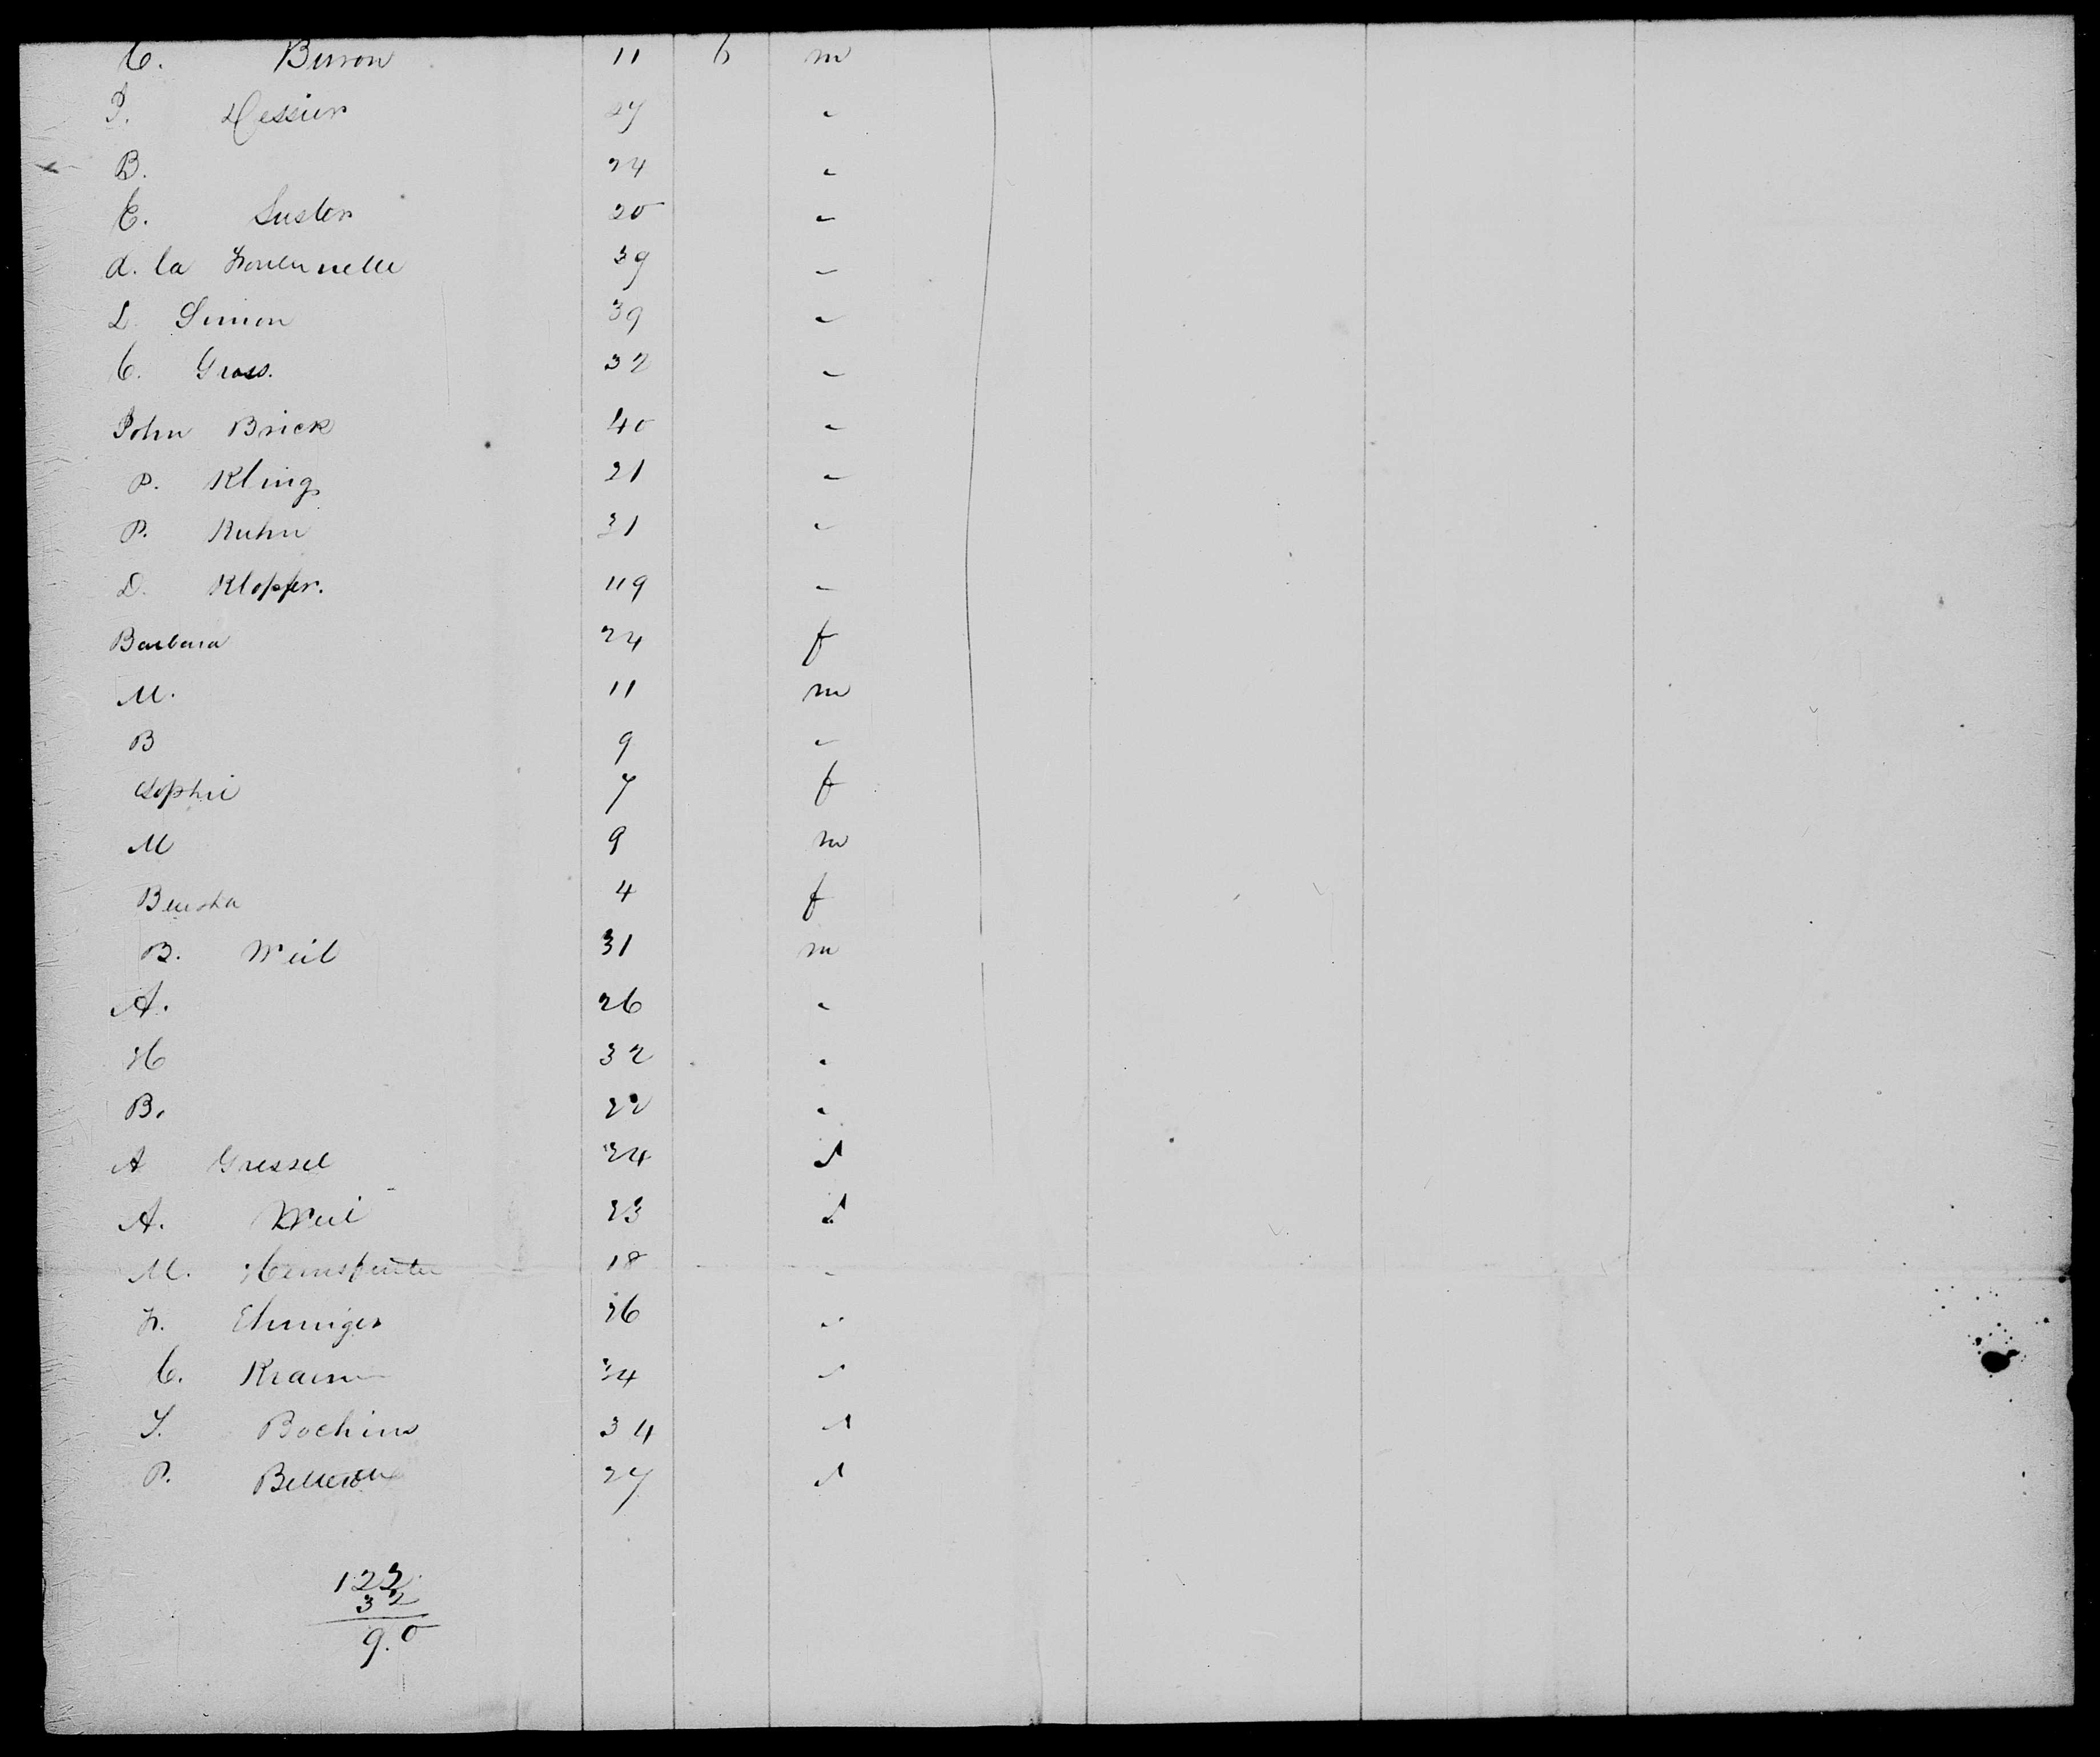 C. Buron 11 6 m
J. Dessier 27 "
B. 24 "
E. Suster 20 "
d. la Fontennelle 39 "
L. Simon 39 "
C. Gross. 32 "
John Brick 40 "
P. Kling 21 "
P. Kuhn 31 "
D. Klopfer. 49 "
Barbara 24 f
M. 11 m
B 9 "
Sophie 7 f
M 9 m
4 f
B. Weil 31 m
A. 26 "
H 32 "
B. 22 "
A Gressel 24 "
A. Weil 23 "
M. 18 "
F. Ehninger 26 "
C. 34 "
J. 34 "
P. 27 "
122
32
9.0